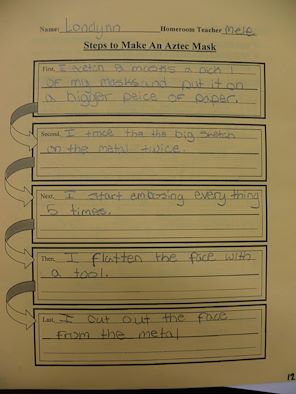 Name: Londynn Homeroom Teacher Mele
Steps to Make An Aztec Mask
First, I scetch 9 masks a pick 1
of my masks and put it on
a bigger peice of paper.
Second, I trace the the big sketch
on the metal twice.
Next, I start embosing every thing
5 times.
Then, I flatten the face with
a tool.
Last, I cut out the face
from the metal
12